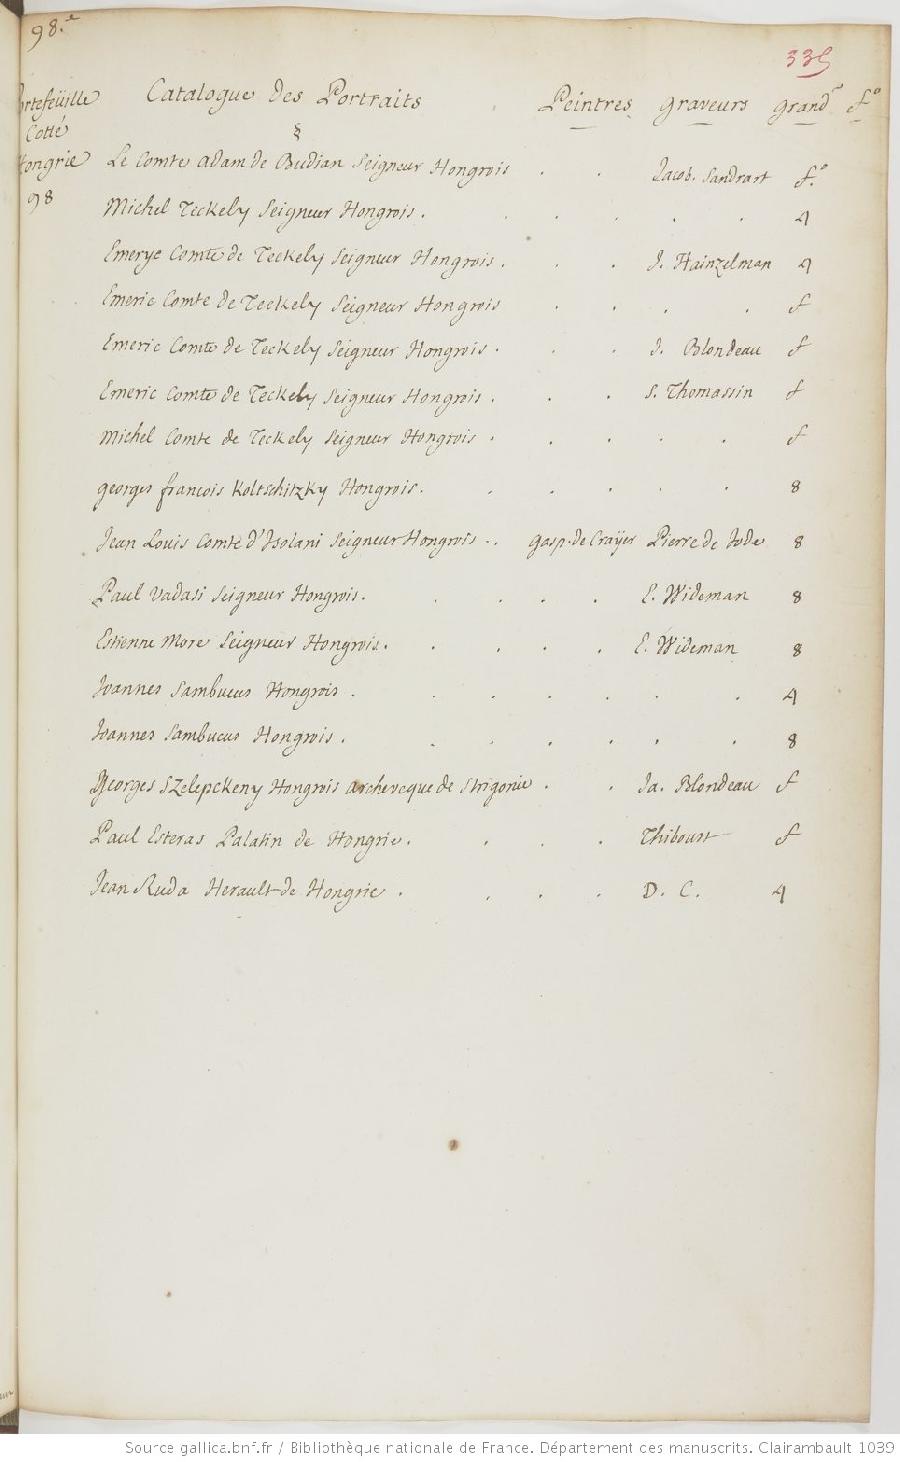 98.e
335
Portefeüille Cotté Hongrie 98
Catalogue des Portraits Peintres graveurs grandr fo
§
Le Comte Adam de Budian Seigneur Hongrois . . Jacob. Sandrart f.o
Michel Teckely Seigneur Hongrois . . . . . . 4
Emerye Comte de Teckely Seigneur Hongrois . . . J. Hainzelman 4
Emeric Comte de Teckely Seigneur Hongrois . . . . f
Emeric Comte de Teckely Seigneur Hongrois . . . J. Blondeau f
Emeric Comte de Teckely Seigneur Hongrois . . . S. Thomassin f
Michel Comte de Teckely Seigneur Hongrois . . . . . f
georges francois Koltschitzky Hongrois . . . . . . 8
Jean Louis Comte d'Isolani Seigneur Hongrois . . gasp. de Craÿer Pierre de Jode 8
Paul Vadasi Seigneur Hongrois . . . . . E. Wideman 8
Estienne More Seigneur Hongrois . . . . . E. Wideman 8
Joannes Sambucus Hongrois . . . . . . . 4
Joannes Sambucus Hongrois . . . . . . . 8
Georges Szelepckeny Hongrois archeveque de Strigonie . . Ja. Blondeau f
Paul Esteras Palatin de Hongrie . . . . Thiboust f
Jean Ruda Herault de Hongrie . . . . D. C. 4
Source gallica.bnf.fr / Bibliothèque nationale de France. Département des manuscrits. Clairambault 1039